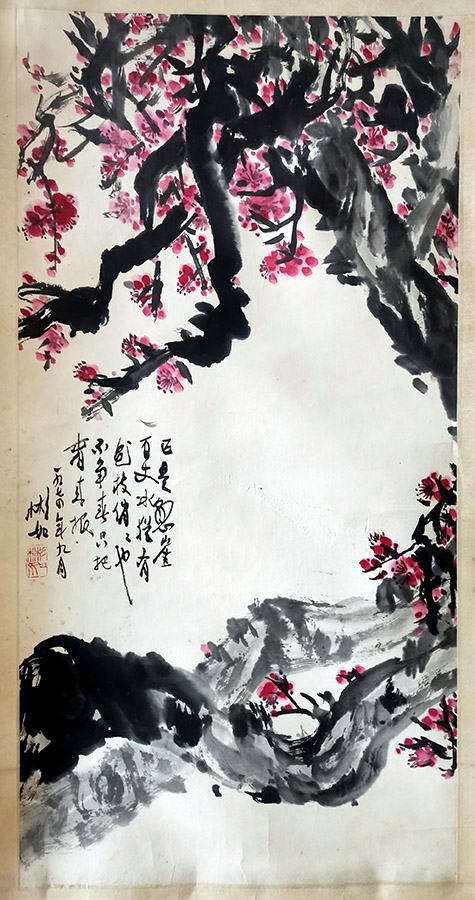 已是悬崖
百丈冰犹有
花枝俏〻也
不争春只把
春来报
一九七年九月